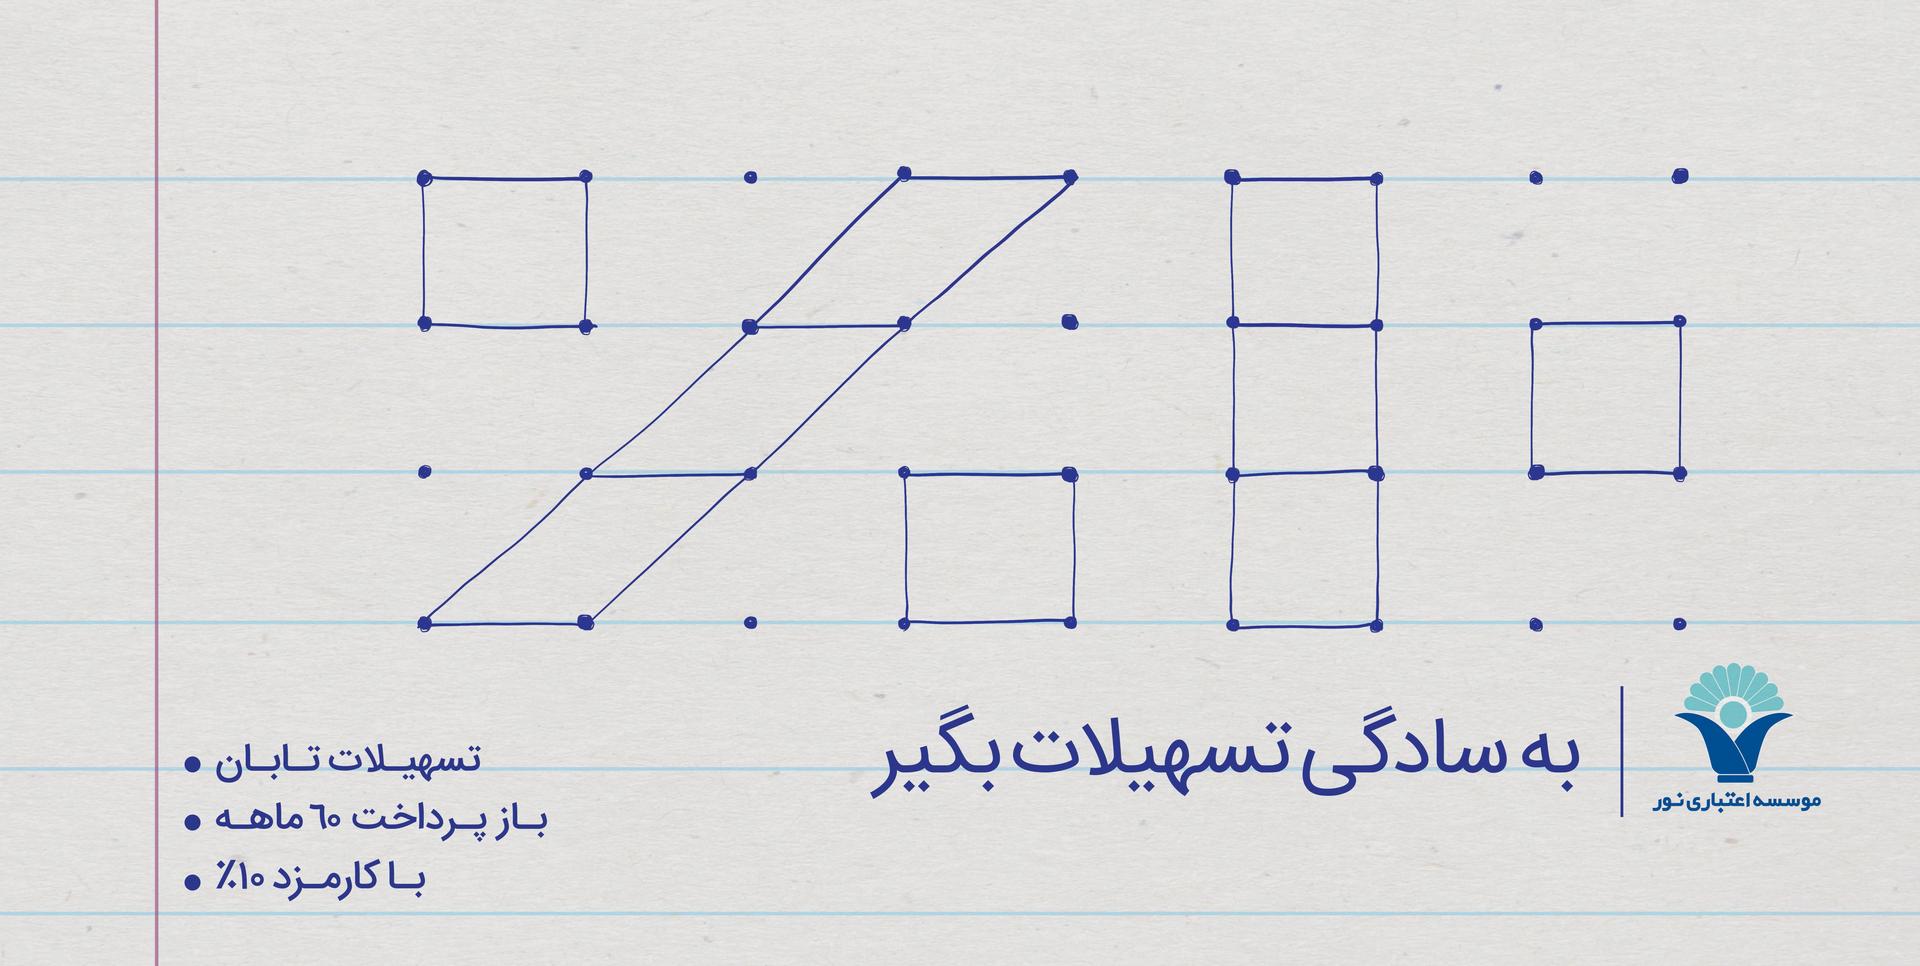 ٪۱۰
به سادگی تسهیلات بگیر
موسسه اعتباری نور
تسهیلات تابان
باز پرداخت ٦۰ ماهه
با کارمزد ۱۰٪